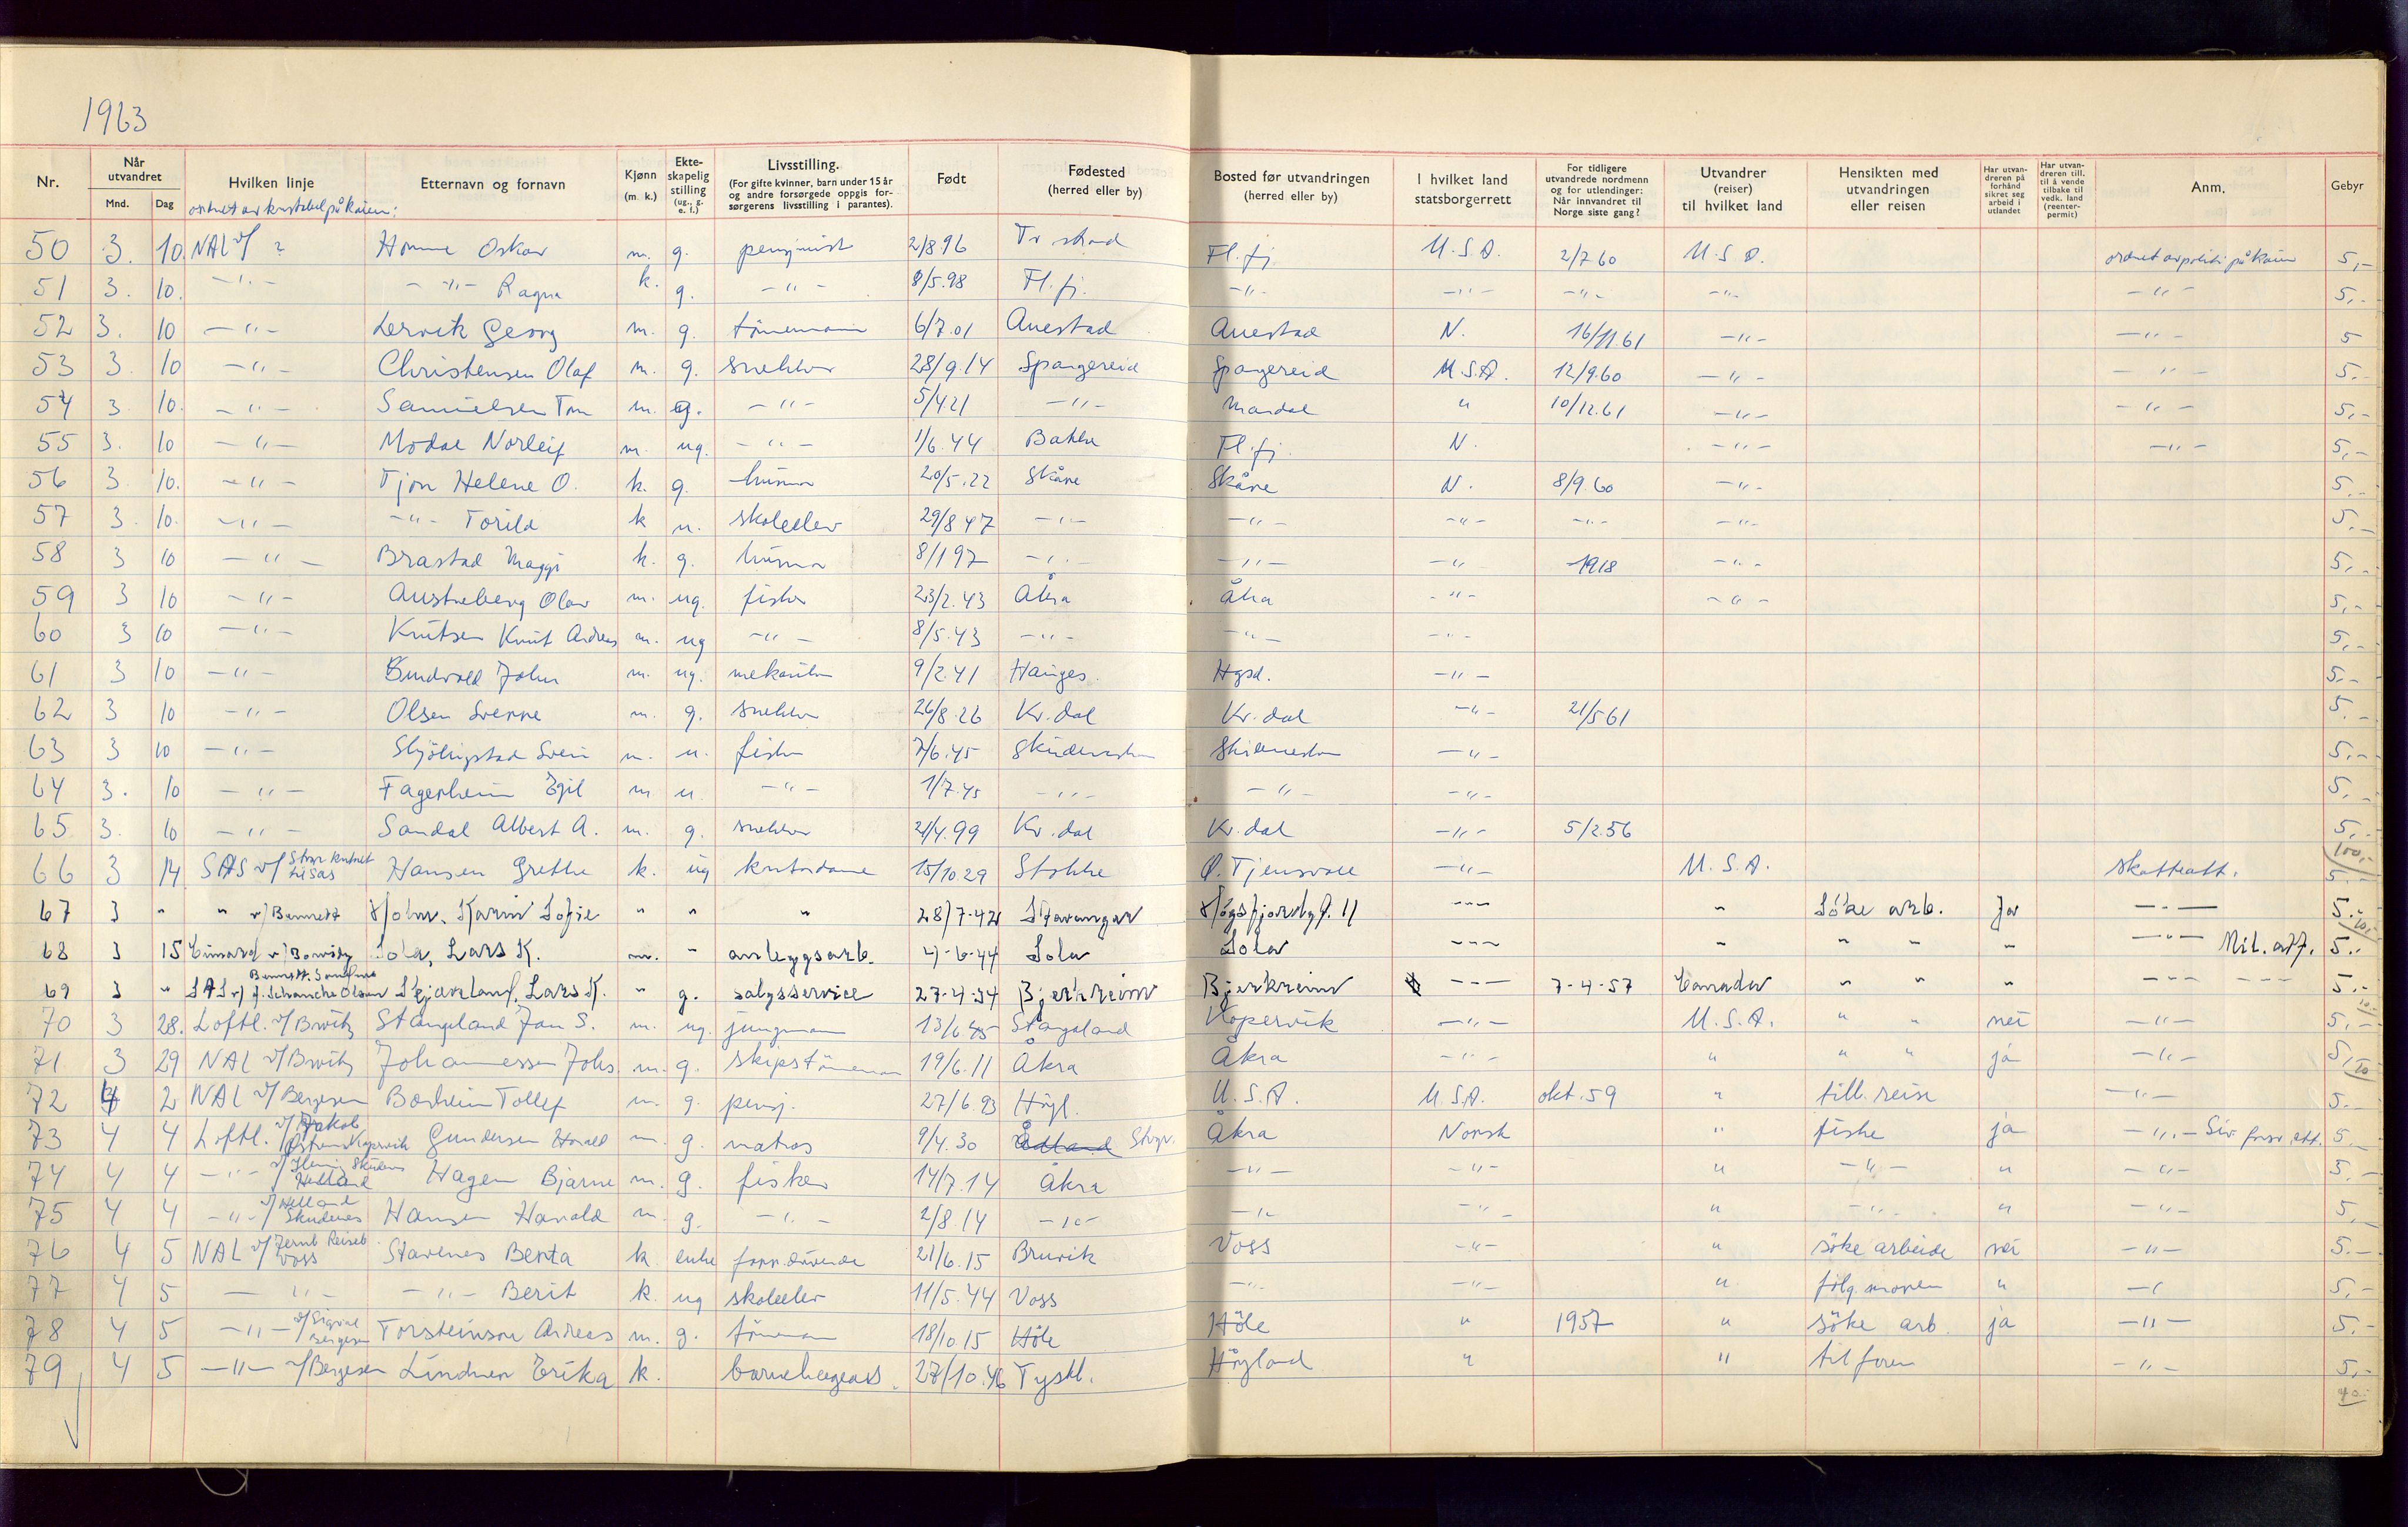 1963
Nr. Når utvandret Mnd. Dag Hvilken linje Etternavn og fornavn Kjønn (m. k.) Ekteskapelig stilling (ug., g. e. f.) Livsstilling. (For gifte kvinner, barn under 15 år og andre forsørgede oppgis forsørgerens livsstilling i parantes). Født Fødested (herred eller by) Bosted før utvandringen (herred eller by) I hvilket land statsborgerrett For tidligere utvandrede nordmenn og for utlendinger: Når innvandret til Norge siste gang? Utvandrer (reiser) til hvilket land Hensikten med utvandringen eller reisen Har utvandreren på forhånd sikret seg arbeid i utlandet Har utvandreren till. til å vende tilbake til vedk. land (reenterpermit) Anm. Gebyr
50 3. 10. NAL v/ ? Homme Oskar m. g. pensjonist 2/8 96 Fl. fj U.S.A. 2/7 60 U.S.A. ordnet av politi på kaien 5,-
51 3. 10. -"- -"- Ragna k. g. -"- 8/5.98 Fl. fj. -"- -"- -"- -"- -"- 5,-
52 3. 10 -"- Lervik Georg m. g. tömmermann 6/7.01 Auestad Auestad N. 16/11.61 -"- -"- 5
53 3. 10 -"- Christensen Olaf m. g. snekker 28/9.14 Spangereid Spangereid U.S.A. 12/9.60 -"- -"- 5.-
54 3 10. -"- Samuelsen Tom m. g. -"- 5/4 21 -"- Mandal " 10/12.61 -"- -"- 5,-
55 3. 10 -"- Modal Norleif m. ug. -"- 1/6.44 Bakke Fl. fj. N. -"- -"- 5,-
56 3 10. -"- Tjon Helene O. k. g. husmor 20/5.22 Skåre Skåre N. 8/9.60 -"- 5,-
57 3. 10. -"- -"- Torild k u. skoleelev 29/8 47 -"- -"- -"- -"- -"- 5,-
58 3 10 -"- Brastad Maggi k. g. husmor 8/1 97 -"- -"- -"- 1918 -"- 5,-
59 3 10 -"- Austreberg Olav m. ug. fisker 23/2.43 Åkra Åkra -"- -"- 5,-
60 3 10 -"- Knutsen Knut Andreas m. ug -"- 8/5.43 -"- -"- -"- 5,-
61 3 10 -"- John m. ug. mekaniker 9/2.41 Hauges. Hgsd. -"- 5,-
62 3 10 -"- Olsen Sverre m. g. snekker 26/8.26 Kv. dal Kv. dal -"- 21/5 61 5.-
63 3 10 -"- Svein m. u. fisker 7/6.45 -"- 5,-
64 3. 10 -"- Fagerheim Egil m u. -"- 1/7.45 -"- -"- -"- 5,-
65 3. 10 -"- Sandal Albert A. m. g. snekker 21/4.99 Kv. dal Kv. dal -"- 5/2.56 5,-
100,-
66 3 14 SAS v/ Hansen Grethe k. ug kontordame 15/10 29 Stokke Ø. Tjensvoll -"- U.S.A. skatteatt. 5.-
67 3 " " v/ Bennett Holm, Karin Sofie " " " 28/7-42 Stavanger -"- " Söke arb. Ja -"- 5.-
10,-
68 3 15 Cunard v/ Sola, Lars K. m. " anleggsarb. 4-6-44 Sola Sola -"- " " " " -"- Mil. att. 5.-
69 3 " SAS v/ J. Schanche Olsen Lars K. " g. salgsservice 27-4-34 Bjerkreim Bjerkreim -"- 7-4-57 Canada " " " -"- 5.-
10.-
70 3 28. Loftl. v/ Stangeland Jan S. m. ug. jungmann 13/6 45 Stangeland Kopervik -"- U.S.A. " " nei -"- 5,-
71 3 29 NAL v/ Johannessen Johs. m. g. 19/6.11 Åkra Åkra -"- " " " ja -"- 5,-
10
72 4 2 NAL v/ Bergesen Borheim Tollef m. g. pensj. 27/6.93 Høgl. U.S.A. U.S.A. okt. 59 " tilb. reise -"- 5.-
73 4 4 Loftl. v/ Jakob Gundersen Harald m. g. matros 9/4.30 Åkra Norsk " fiske ja -"- 5.-
74 4 4 -"- v/ Helland Hagen Bjarne m. g. fisker 14/7.14 Åkra -"- -"- " -"- " -"- 5.-
75 4 4 -"- v/ Helland Skudenes Hansen Harald m g. -"- 2/8.14 -"- -"- -"- " -"- " -"- 5,-
76 4 5 NAL v/ Jernb Reiseb. Voss Stavenes Berta k. enke 21/6.15 Bruvik Voss -"- " söke arbeide nei -"- 5.-
77 4 5 -"- -"- Berit k. ug skoleelev 11/5.44 Voss -"- -"- " følg. moren " -"- 5,-
78 4 5 -"- v/ Sigval Bergesen Torsteinson Andreas m. g. 18/10 15 Höle Höle " 1957 " söke arb. ja -"- 5.-
79 4 5 -"- v/ Bergesen Lindner Erika k. barnehageass. 27/10.46 Tyskl. Høyland " " -"- 5,-
40.-